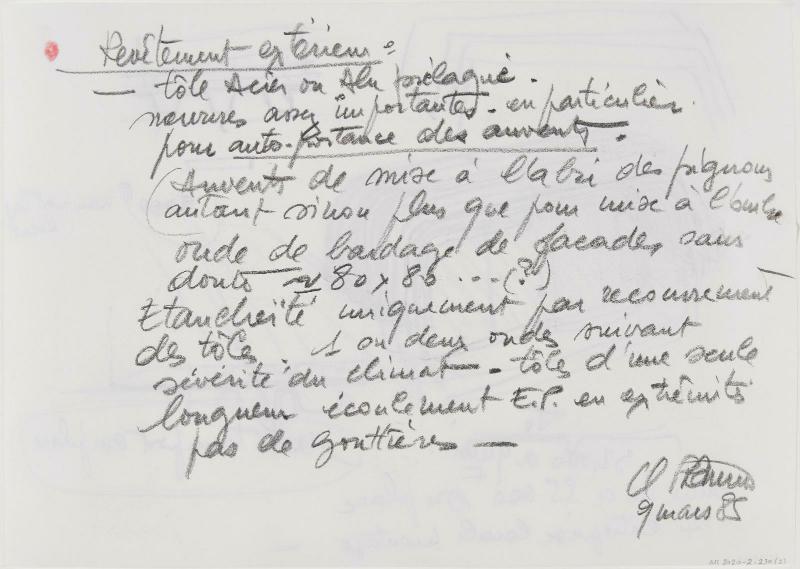 Revêtement extérieur:
— tôle Acier ou Alu prélaqué.
nervures assez importantes. en particulier
pour auto-portance des auvents.
(Auvents de mise à l'abri des pignons
autant sinon plus que pour mise à l'ombre
onde de bardage de façade, sans
doute ≈ 80 x 80 ... (?)
Etanchéité uniquement par recouvrement
des tôles. 1 ou deux ondes suivant
sévérité du climat — . tôles d'une seule
longueur écoulement E.P. en extrémités
pas de gouttières —
9 mars 85